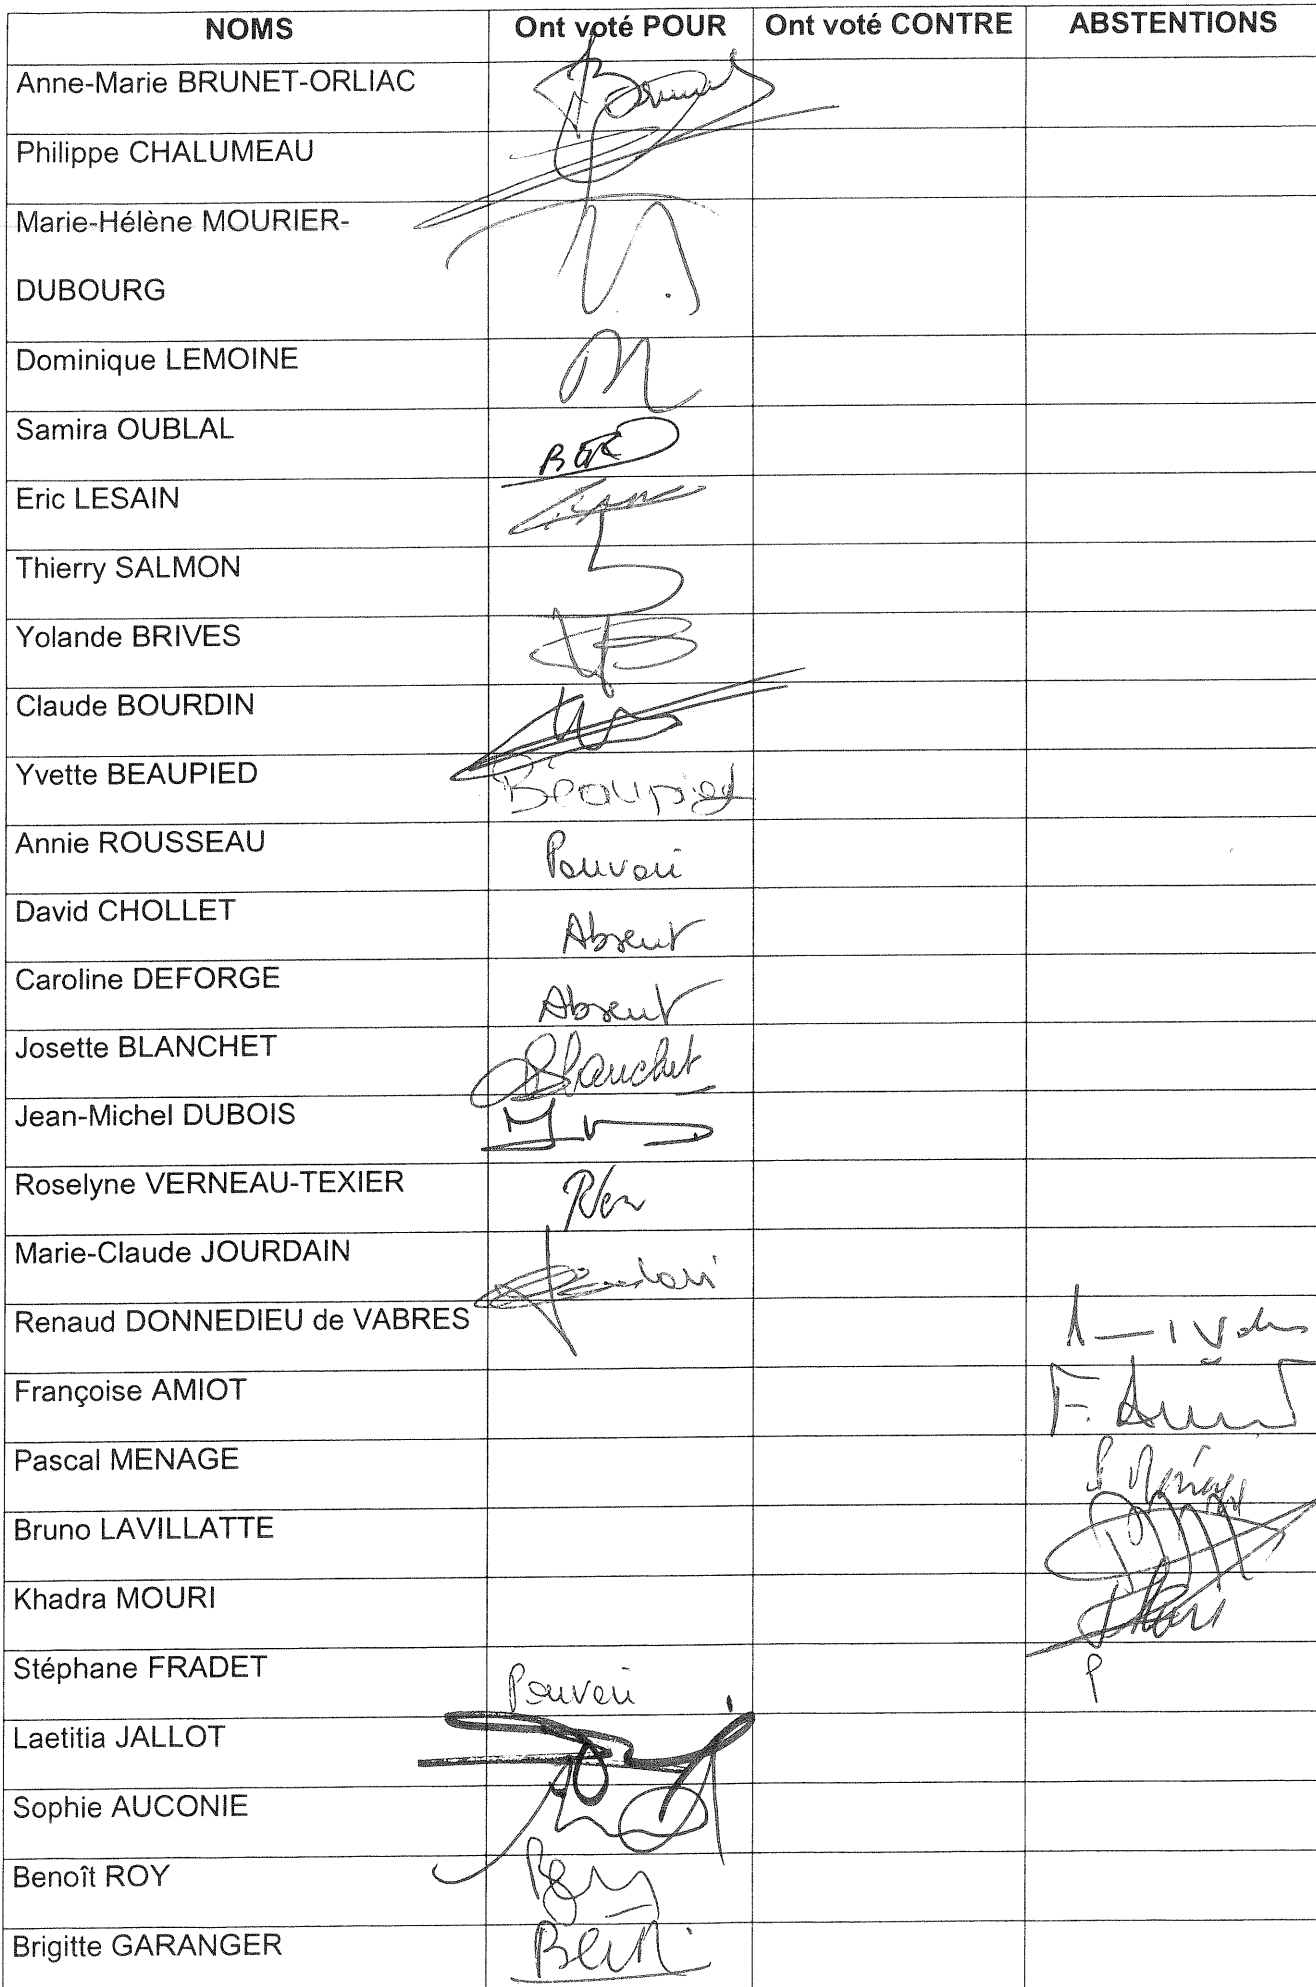 NOMS Ont voté POUR Ont voté CONTRE ABSTENTIONS
Anne-Marie BRUNET-ORLIAC
Philippe CHALUMEAU
Marie-Hélène MOURIER-
DUBOURG
Dominique LEMOINE
Samira OUBLAL
Eric LESAIN
Thierry SALMON
Yolande BRIVES
Claude BOURDIN
Yvette BEAUPIED Beaupied
Annie ROUSSEAU Pouvoir
David CHOLLET Absent
Caroline DEFORGE Absent
Josette BLANCHET Blanchet
Jean-Michel DUBOIS
Roselyne VERNEAU-TEXIER
Marie-Claude JOURDAIN
Renaud DONNEDIEU de VABRES
Françoise AMIOT
Pascal MENAGE
Bruno LAVILLATTE
Khadra MOURI
Stéphane FRADET Pouvoir P
Laetitia JALLOT
Sophie AUCONIE
Benoît ROY
Brigitte GARANGER